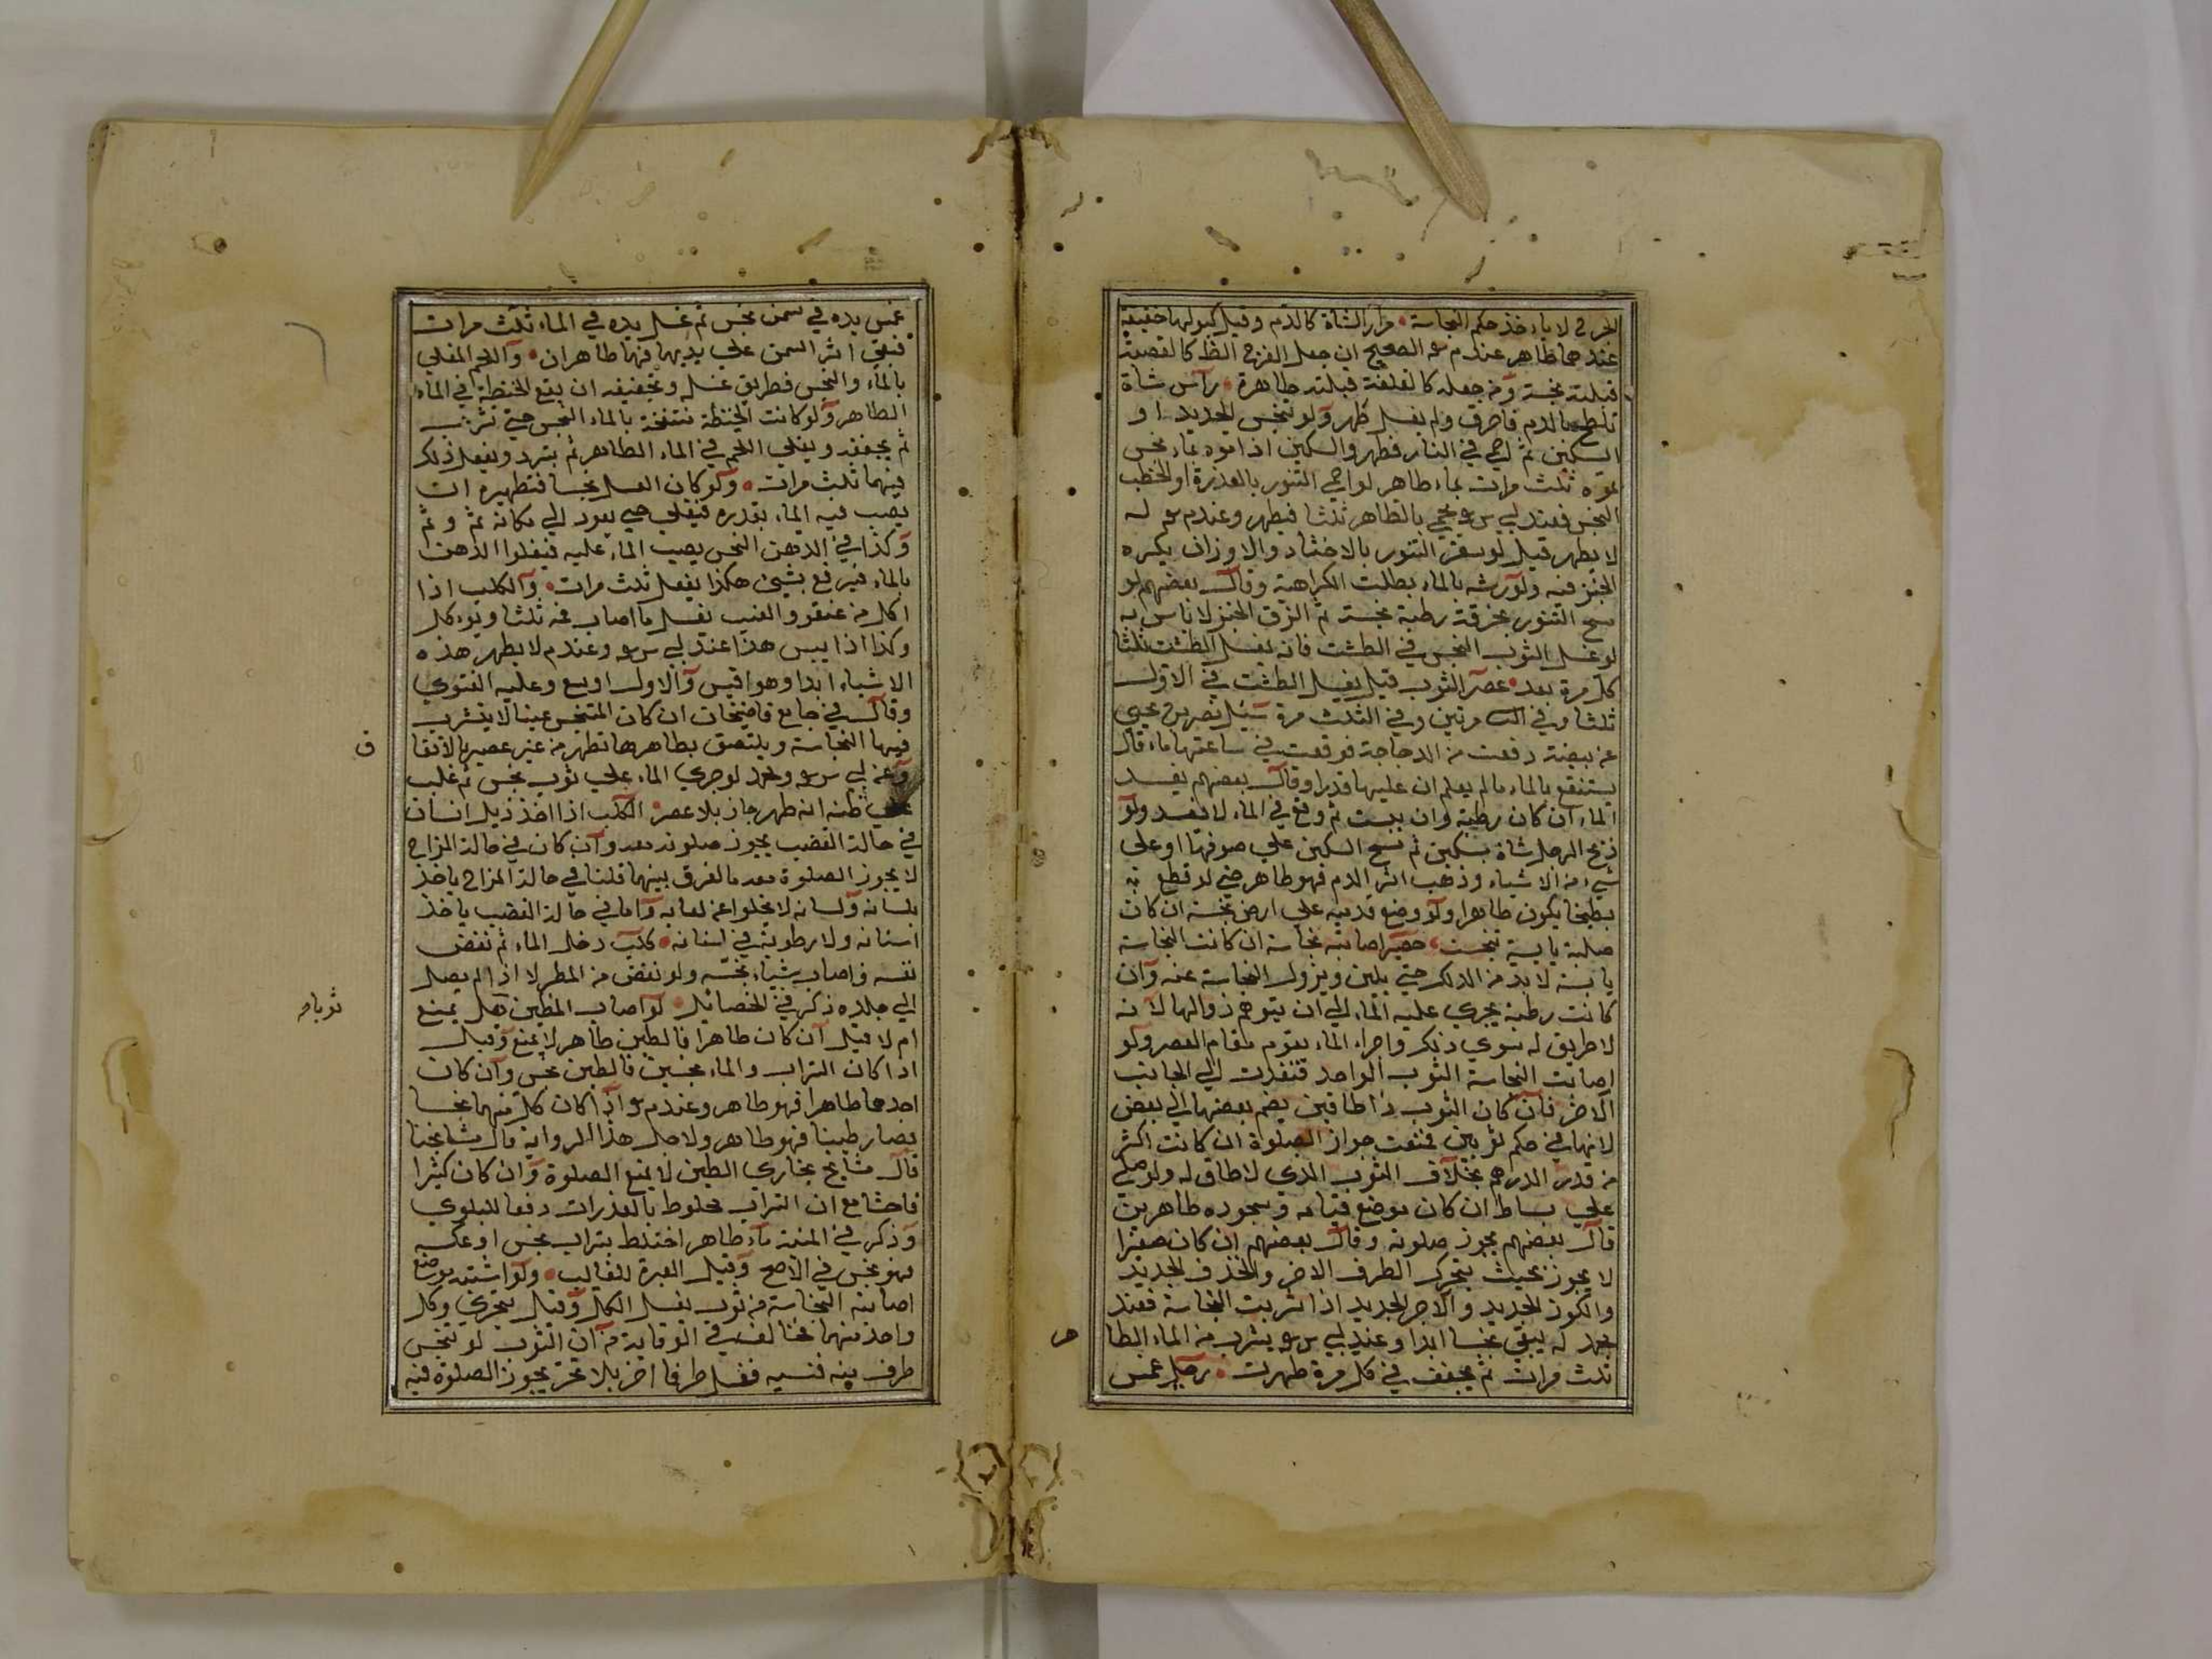 لا ياءخذ حكم النجاسة مرار الشاة كالدم وقيل كبولها خفيفة
عندهما طاهر عندم الصحيح ان جعل الفرج الظ كالقصبة
قبلته نجسة ومن جعله كالغلفة قبلته طاهرة رأس شاة
تلطخ بالدم فاحرق ولم يغسل طهر ولو تنجس الحديد او
السكين ثم احمي في النار فطهر والسكين اذا موه بماء نجس
يموه ثلث مرات بماء طاهر لو احمي التنور بالعذرة او الحطب
النجس فعند ابي س يحمي بالطاهر ثلثا فيطهر وعندم له
لا يطهر قيل لو سعر التنور بالاخثاء والاوراث يكره
الخبز فيه ولو رشه بالماء بطلت الكراهية وقال بعضهم لو
مسح التنور بخرقة رطبة نجسة ثم الزق الخبز لا باس به
لو غسل الثوب النجس في الطشت فانه يغسل الطشت ثلثا
كل مرة بعد عصر الثوب قيل يغسل الطشت في الاول
ثلثا وفي مرتين وفي الثلث مرة سئل نصر بن يحيي
عن بيضة دفعت من الدجاجة فوقعت في ساعتها ماء قال
ينتفع بالماء ما لم يعلم ان عليها قدرا وقال بعضهم يفسد
الماء ان كان رطبة وان يبست ثم وقع في الماء لا تفسد ولو
ذبح الرجل شاة بسكين ثم مسح السكين علي صوفها او علي
شيء من الاشياء وذهب اثر الدم فهو طاهر حتي لو قطع به
بطيخا يكون طاهرا ولو وضع قدميه علي ارض نجسة ان كان
صلبة يابسة تنجست حصير اصابته نجاسة ان كانت النجاسة
يابسة لا بد من الدلك حتي يلين ويزول النجاسة عنه وان
كانت رطبة يجري عليه الماء الي ان يتوهم زوالها لانه
لا طريق له سوي ذلك واجراء الماء يقوم مقام العصر ولو
اصابت النجاسة الثوب الواحد فنفذت الي الجانب
الاخر فان كان الثوب ذا طاقين يضم بعضها الي بعض
لانها في حكم ثوبين فمنعت جواز الصلوة ان كانت اكثر
من قدر الدرهم بخلاف الثوب الذي لا طاق له ولو صلي
علي بساط ان كان موضع قيامه وسجوده طاهرين
قال بعضهم يجوز صلوته وقال بعضهم ان كان صغيرا
لا يجوز بحيث يتحرك الطرف الاخر والخذف الجديد
والكوز الجديد والآجر الجديد اذا شربت النجاسة فعند
محمد له يبقي نجسا ابدا وعند ابي س يشرب من الماء الطا
ثلث مرات ثم يجفف في كل مرة طهرت رجل غمس
غمس يده في سمن نجس ثم غسل يده في الماء ثلث مرات
فبقي اثر السمن علي يديها فهما طاهران واللحم المغلي
بالماء والنجس فطريق غسله وتجفيفه ان يقع الحنطة في الماء
الطاهر ولو كانت الحنطة منتفخة بالماء النجس حتي تشرب
ثم يجفف ويغلي اللحم في الماء الطاهر ثم يبرد ويفعل ذلك
فيهما ثلث مرات ولو كان العسل نجسا فتطهيره ان
يصب فيه الماء بقدره فيغلي حتي يعود الي مكانه ثم وثم
وكذا في الدهن النجس يصب الماء عليه فيغلوا الدهن
بالماء فيرفع بشيئ هكذا يفعل ثلث مرات والكلب اذا
اكل من عنقود العنب يغسل ما اصاب فمه ثلثا ويوءكل
وكذا اذا يبس هذا عند ابي س وعندم لا يطهر هذه
الاشياء ابدا وهو اقيس والاول اوسع وعليه الفتوي
وقال في جامع قاضيخان ان كان المتنجس عينا لا يتشرب
فيها النجاسة ويلتصق بظاهرها تطهر من غير عصير بالانقا
ف
وعن ابي س ومحمد لو جري الماء علي ثوب نجس ثم غلب
علي ظنه انه طهر جاز بلا عصر الكلب اذا اخذ ذيل انسان
في حالة الغضب يجوز صلوته معه وان كان في حالة المزاح
لا يجوز الصلوة معه ما لفرق بينهما قلنا في حالة المزاح ياخذ
بلسانه ولسانه لا يخلوا عن لعابه واما في حالة الغضب ياخذ
اسنانه ولا رطوبة في اسنانه كلب دخل الماء ثم نفض
نفسه فاصاب شياء نجسه ولو نفض من المطر لا اذ لم يصل
الي جلده ذكر في الخصائل لو اصاب الطين هل يمنع
ثوباه
ام لا قيل ان كان طاهرا فالطين طاهر لا يمنع وقيل
اذا كان التراب والماء نجسين فالطين نجس وان كان
احدهما طاهرا فهو طاهر وعندم اذا كان كل منهما نجسا
فصار طينا فهو طاهر ولاجل هذا الرواية قال مشايخنا
قال مشايخ بخاري الطين لا يمنع الصلوة وان كان كثيرا
فاحشا مع ان التراب مخلوط بالعذرات دفعا للبلوي
وذكر في المنية ماء طاهر اختلط بتراب نجس او عكسه
فهو نجس في الاصح وقيل العبرة للغالب ولو اشتبه موضع
اصابته النجاسة من ثوب يغسل الكل وقيل يتحري وكل
واحد منهما مخالف في الوقاية من ان الثوب لو تنجس
طرف منه فنسيه فغسل طرفا اخر بلا تحر يجوز الصلوة فيه